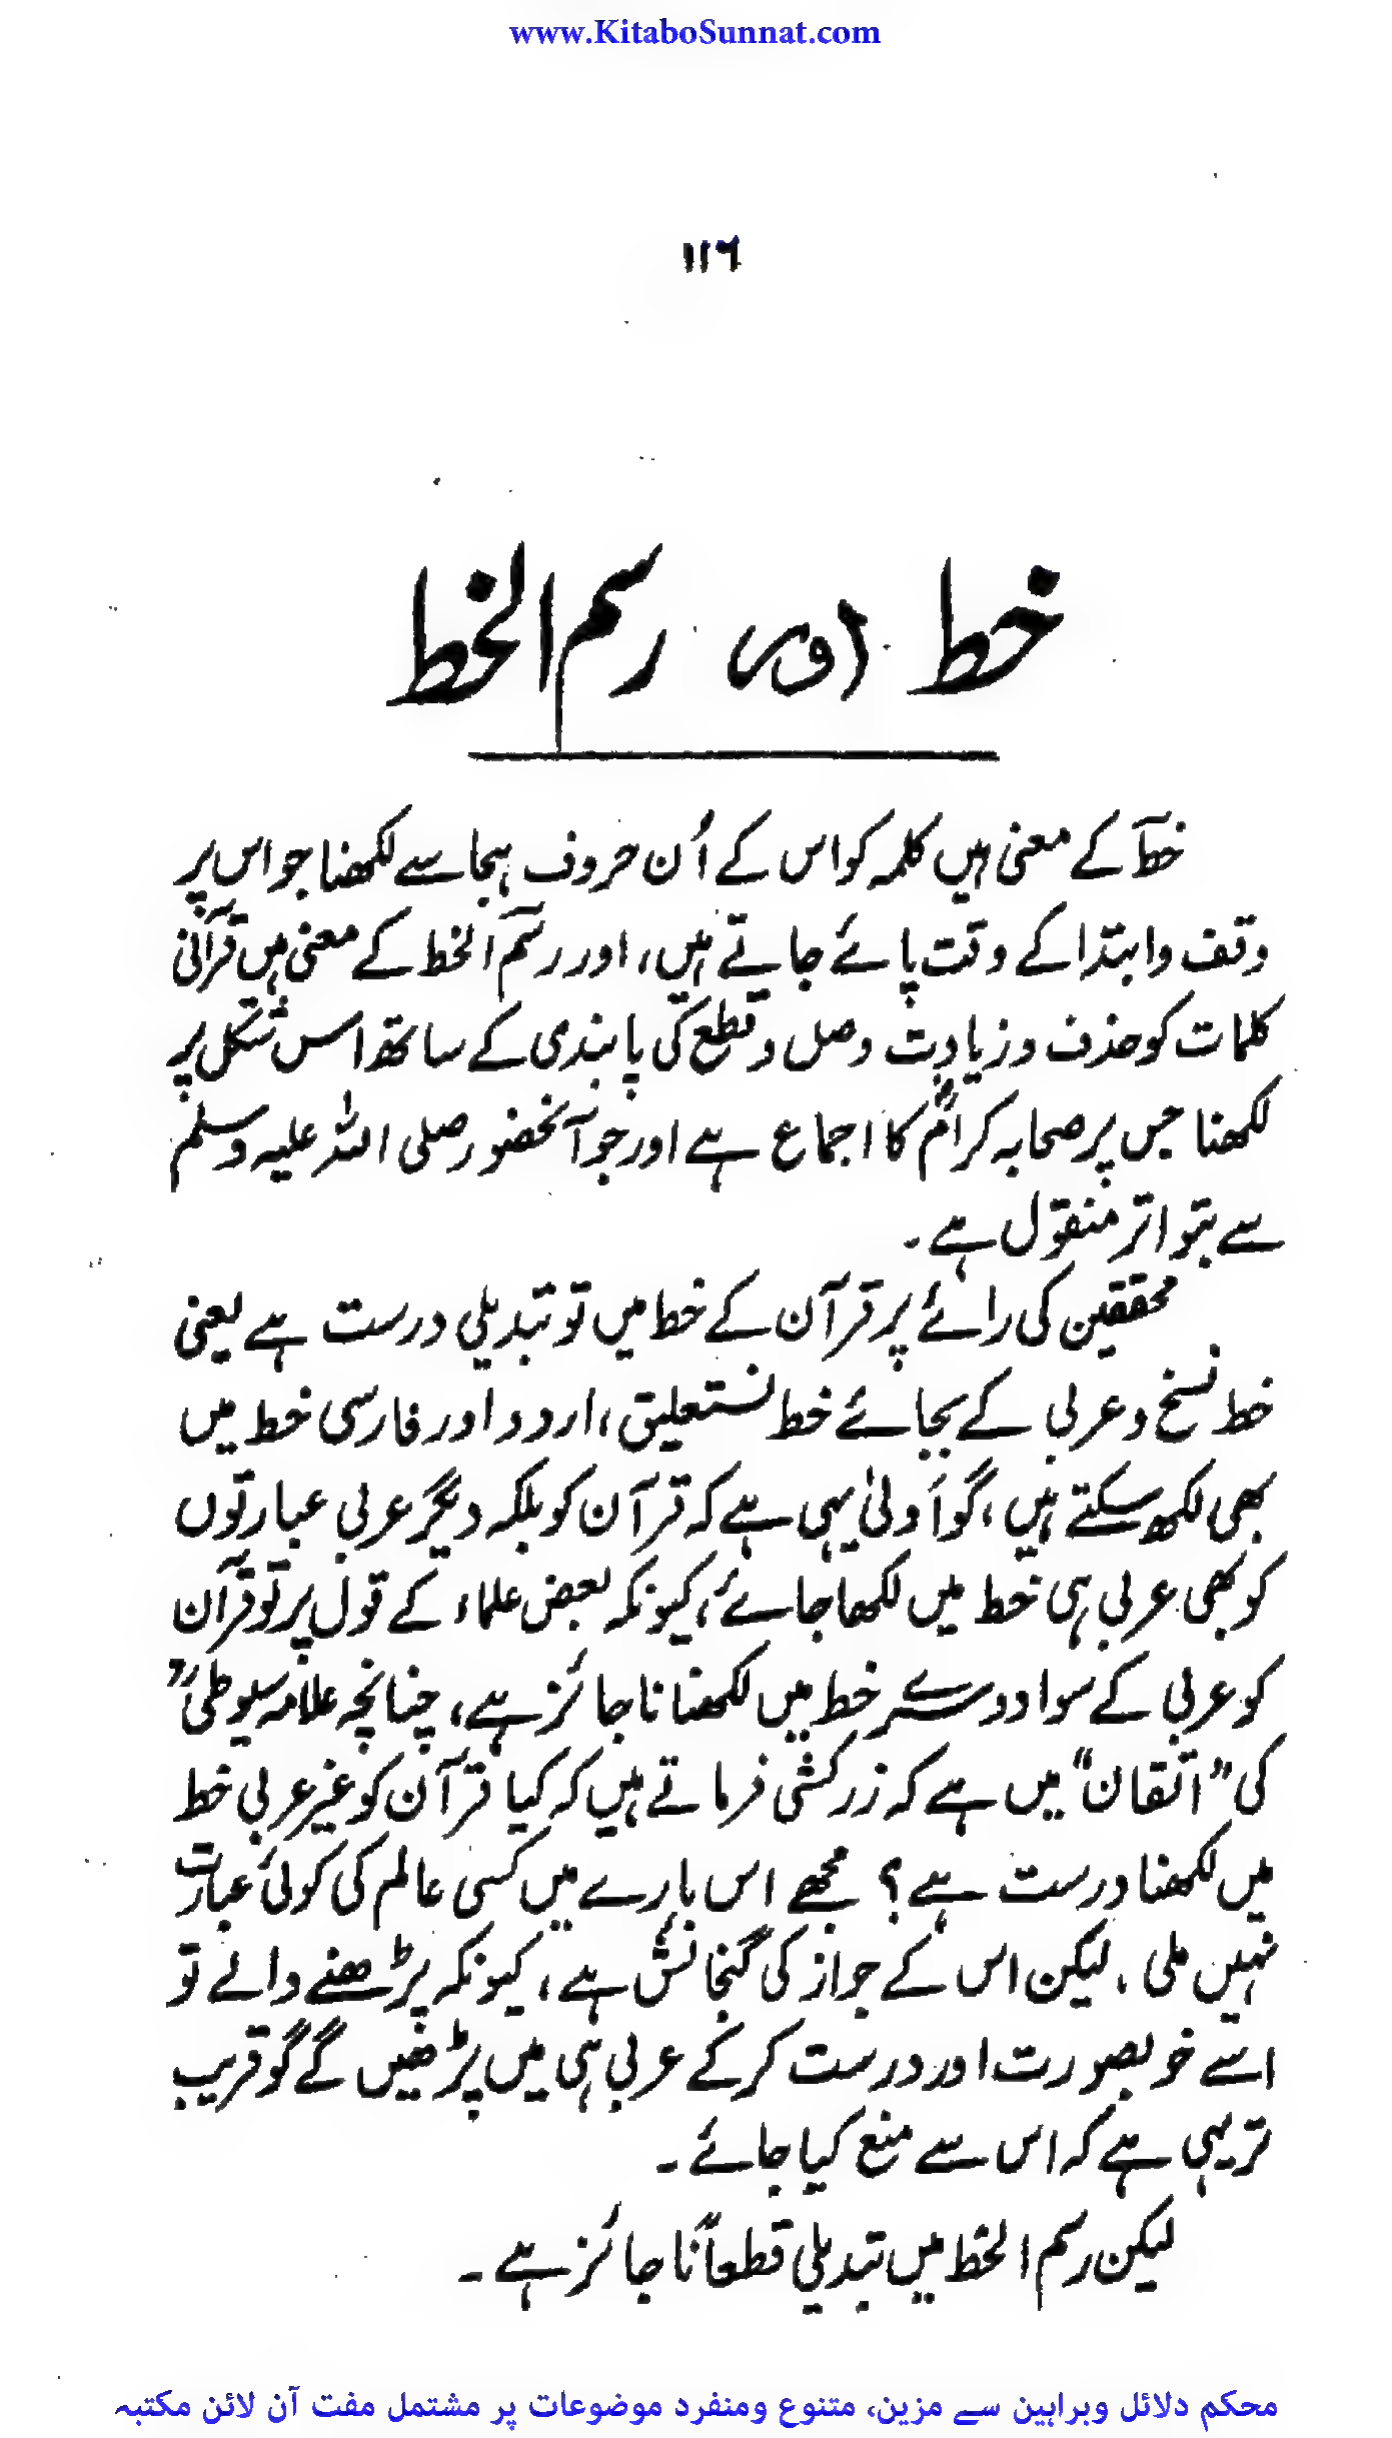 www.KitaboSunnat.com
١١٦
خط اور رسم الخط
خط کے معنی ہیں کلمہ کو اس کے اُن حروف ہجا سے لکھنا جو اس پر
وقف وابتدا کے وقت پائے جاتے ہیں، اور رسم الخط کے معنی ہیں قرآنی
کلمات کو حذف وزیادت وصل وقطع کی پابندی کے ساتھ اس شکل پر
لکھنا جس پر صحابہ کرامؓ کا اجماع ہے اور جو آنحضور صلی اللہ علیہ وسلم
سے بتواتر منقول ہے۔
محققین کی رائے پر قرآن کے خط میں تو تبدیلی درست ہے یعنی
خط نسخ وعربی کے بجائے خط نستعلیق، اردو اور فارسی خط میں
بھی لکھ سکتے ہیں، گو اَولیٰ یہی ہے کہ قرآن کو بلکہ دیگر عربی عبارتوں
کو بھی عربی ہی خط میں لکھا جائے، کیونکہ بعض علماء کے قول پر تو قرآن
کو عربی کے سوا دوسرے خط میں لکھنا ناجائز ہے، چنانچہ علامہ سیوطیؒ
کی ”اتقان“ میں ہے کہ زرکشی فرماتے ہیں کہ کیا قرآن کو غیر عربی خط
میں لکھنا درست ہے؟ مجھے اس بارے میں کسی عالم کی کوئی عبارت
نہیں ملی، لیکن اس کے جواز کی گنجائش ہے، کیونکہ پڑھنے والے تو
اسے خوبصورت اور درست کرکے عربی ہی میں پڑھیں گے گو قریب
تر یہی ہے کہ اس سے منع کیا جائے۔
لیکن رسم الخط میں تبدیلی قطعاً ناجائز ہے۔
محکم دلائل وبراہین سے مزین، متنوع ومنفرد موضوعات پر مشتمل مفت آن لائن مکتبہ